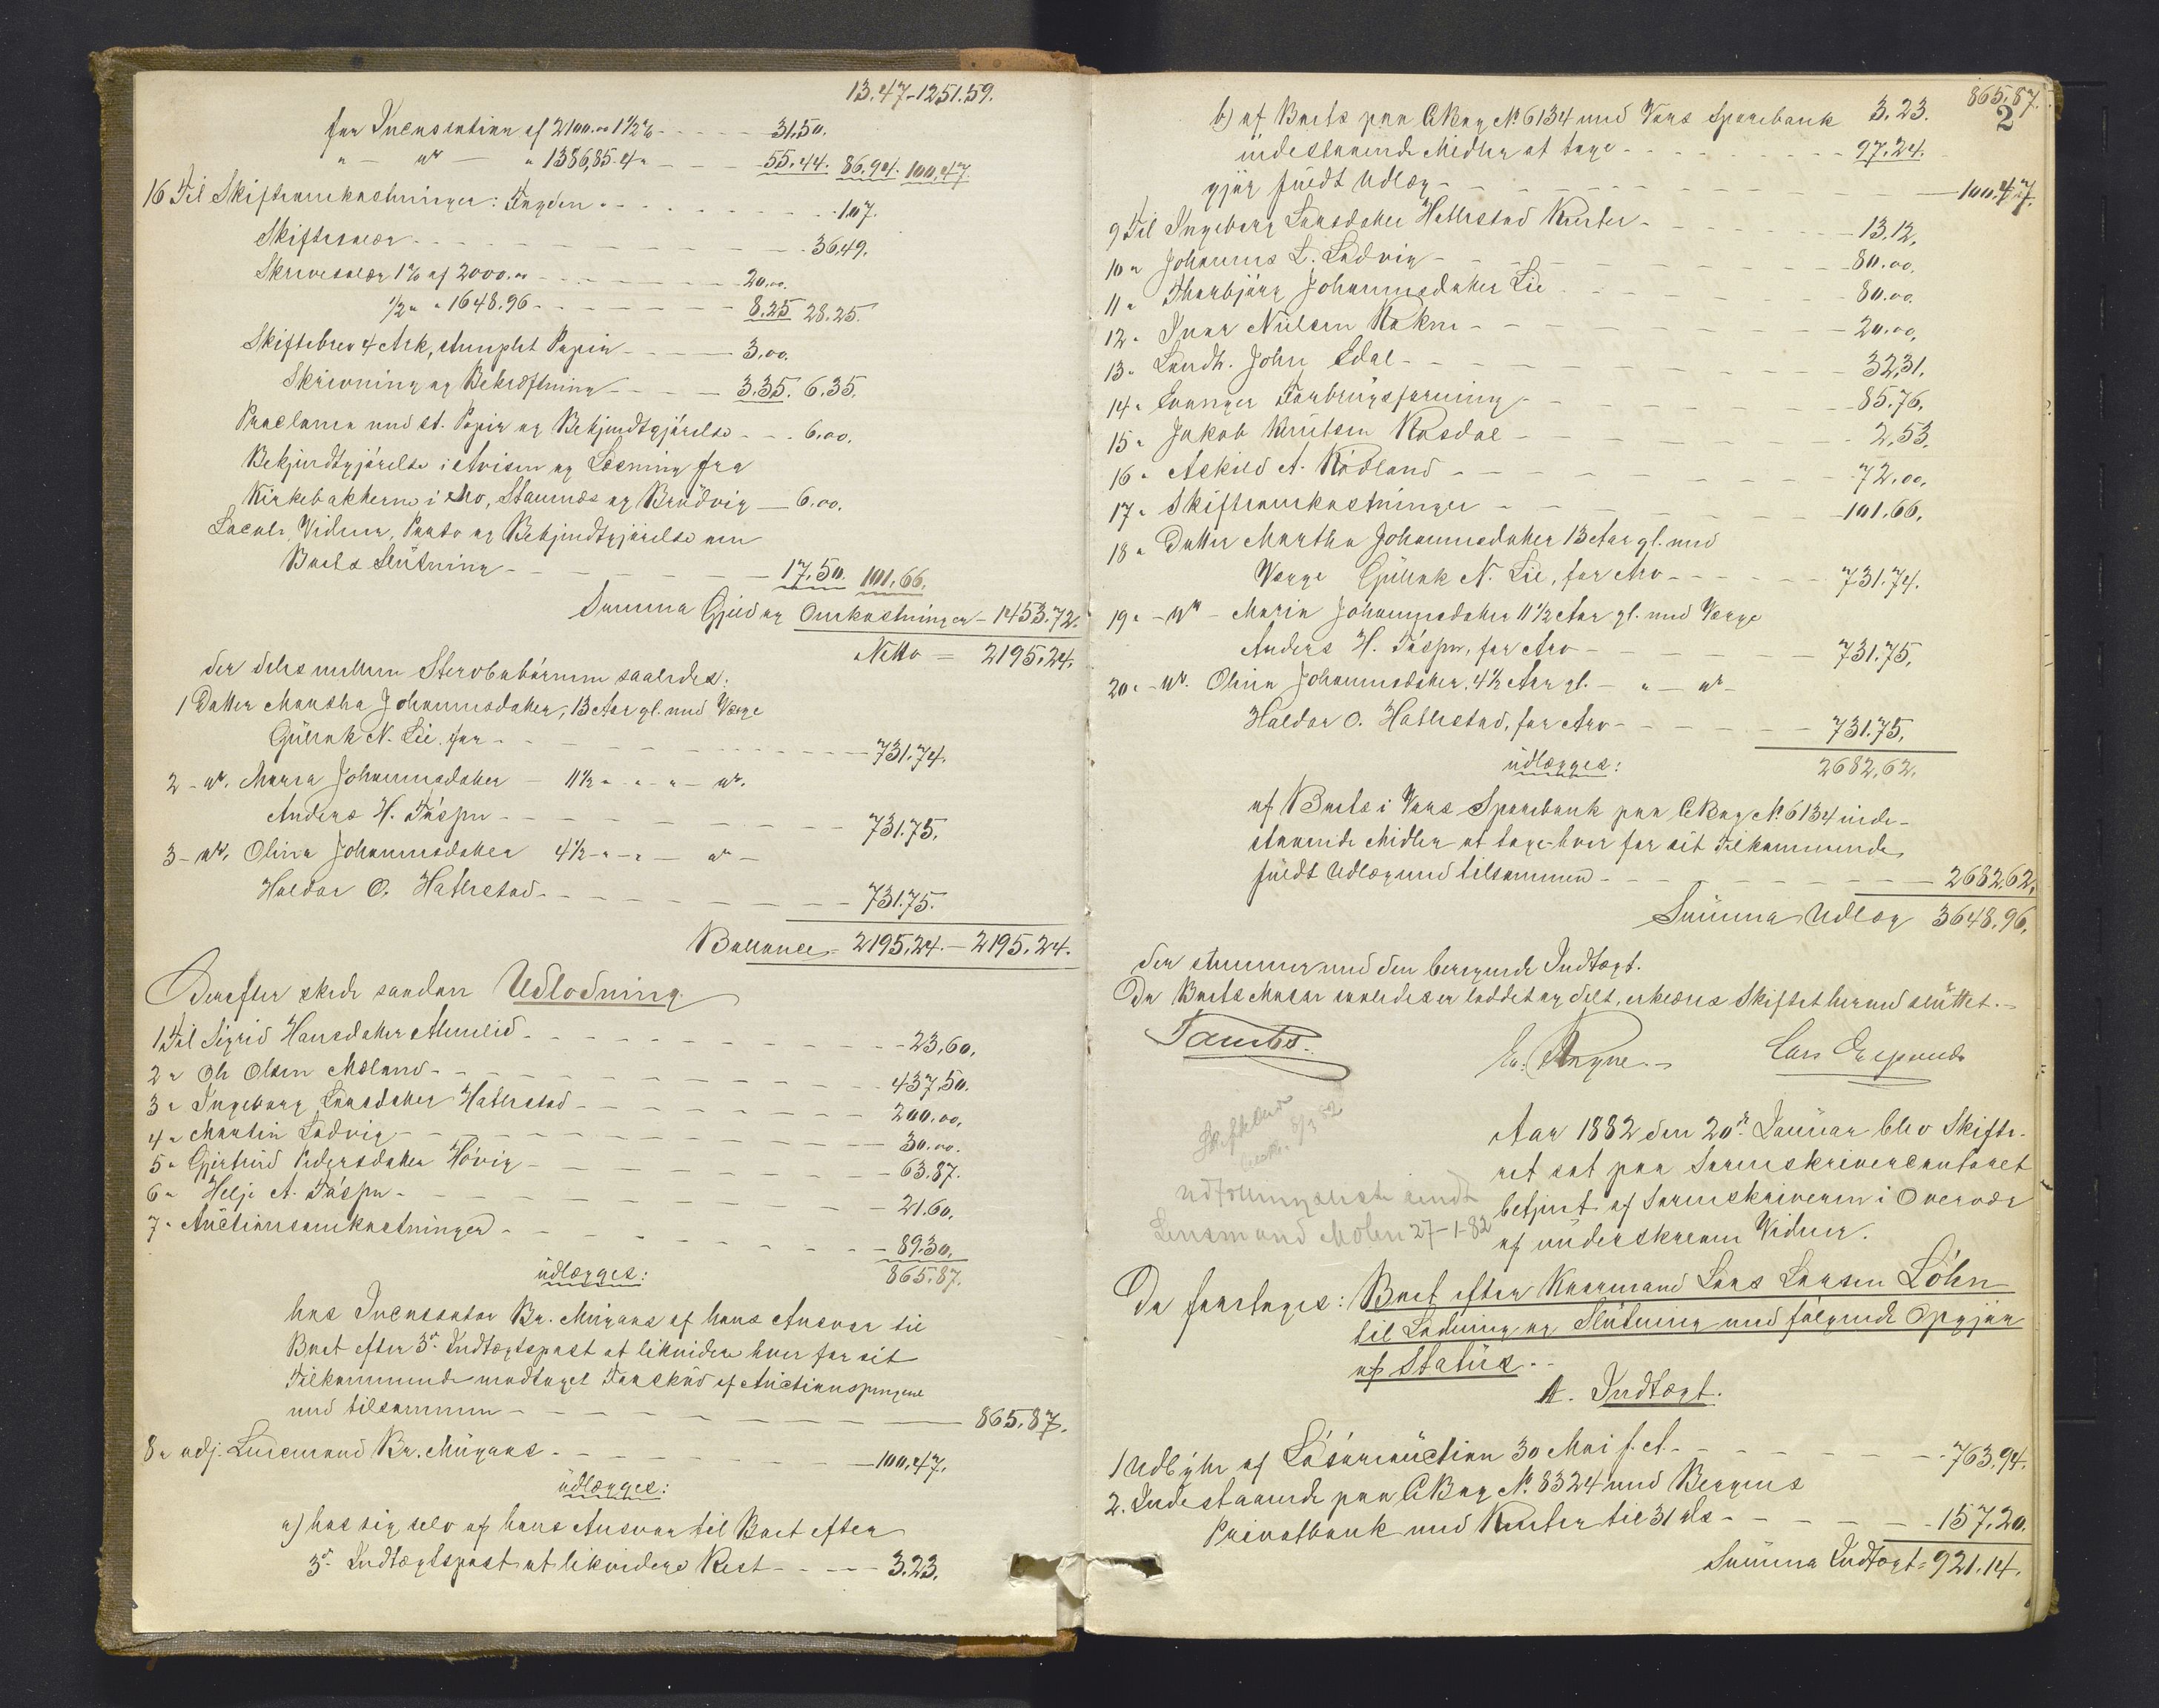 13.47-1251.59.
for Incassation af 2100.00 1½% - - - 31.50.
" - do - " 1386,85. 4 " - - - 55.44. 86.94. 100.47.
16 Til Skifteomkostninger: Fogden - - - 1.07.
Skiftesalær - - - 36.49.
Skrivesalær 1% af 2000.00 - - - 20.00.
½ " " 1648.96 - - - 8.25 28.25.
Skiftebrev 4 Ark, stemplet Papir - - - 3.00.
Skrivning og Bekræftning - - - 3.35. 6.35.
Proclama med st. Papir og Bekjendtgjörelse - - - 6.00.
Bekjendtgjörelse i Avisen og Læsning fra
Kirkebakkerne i Mo, Stamnæs og Brudvig - 6.00.
Locale, Vidner, Porto og Bekjendtgjörelse om
Boets Slutning - - - 17.50. 101.66.
Summa Gjeld og Omkostninger - 1453.72.
Netto = 2195.24.
der deles mellem Sterbobörnene saaledes:
1 Datter Martha Johannesdatter, 13 Aar gl. med Værge
Gullak N. Lie, for - - - 731.74.
2 - do. Maria Johannesdatter - 11½ " - " - " - do.
Anders H. Fáspe - - - 731.75.
3 - do. Olina Johannesdatter 4½ - " - " - do -
Haldor O. Hatlestad - - - 731.75.
Ballance = 2195.24. - 2195.24.
Derefter skede saadan Udlodning.
1 Til Sigrid Hansdatter - - - 23.60.
2 " Ole Olsen Mæland - - - 437.50.
3 " Ingeborg Larsdatter Hatlestad - - - 200.00.
4 " Martin Ladvig - - - 30.00.
5 " Gjertrud Pedersdatter Hóvig - - - 63.87.
6 " Helje A. Fáspe - - - 21.60.
7 " Auctionsomkostninger - - - 89.30.
udlægges: 865.87.
hos Incassator Br. Mugaas af hans Ansvar til
Boet efter 3die Indtægtspost at likvidere hver for sit
Tilkommende modtaget Forskud af Auctionspengene
med tilsammen - - - 865.87.
8 " adj. Lensmand Br. Mugaas - - - 100.47.
udlægges:
a) hos sig selv af hans Ansvar til Boet efter
3die Indtægtspost at likvidere Rest - - - 3.23.
865.87.
2
b) af Boets paa CBog No 6134 med Voss Sparebank 3.23.
indestaaende Midler at tage - - - 97.24.
gjör fuldt Udlæg - - - 100.47.
9 Til Ingeborg Larsdatter Hatlestad Renter - - - 13.12.
10 " Johannes L. Ladvig - - - 80.00.
11 " Thorbjörg Johannesdatter Lie - - - 80.00.
12 " Ivar Nielsen - - - 20.00.
13 " Landh. John - - - 32.31.
14 " Evanger Forbrugsforening - - - 85.76.
15 " Jakob Knutsen Rasdal - - - 2.53.
16 " Askild A. Rödland - - - 72.00.
17 " Skifteomkostninger - - - 101.66.
18 " Datter Martha Johannesdatter 13 Aar gl. med
Værge Gullak N. Lie, for Arv - - - 731.74.
19 " - do - Maria Johannesdatter 11½ Aar gl. med Værge
Anders H. Fáspe, for Arv - - - 731.75.
20 " - do. Olina Johannesdatter, 4½ Aar gl. - " - do -
Haldor O. Hatlestad, for Arv - - - 731.75.
udlægges: 2682.62.
af Boets i Voss Sparebank paa CBog No 6134 inde-
staaende Midler at tage hver for sit Tilkommende
fuldt Udlæg med tilsammen - - - 2682.62.
Summa Udlæg 3648.96.
der stemmer med den beregnede Indtægt.
Da Boets Masse saaledes er loddet og delt, erklæres Skiftet hermed sluttet.-
Lars
Skiftebrev
8/3 82
Udfölningsliste sendt
Lensmand Molven 27-1-82
Aar 1882 den 20de Januar blev Skifte-
ret sat paa Sorenskrivercontoret
betjent af Sorenskriveren i Overvær
af underskrevne Vidner.
Da foretoges: Boet efter Kaarmand Lars Larsen Löhn
til Lodning og Slutning med fölgende Opgjör
af Status.-
A. Indtægt.
1 Udbytte af Lösöreauction 30 Mai f.A. - - - 763.94.
2. Indestaaende paa CBog No. 8324 med Bergens
Privatbank med Renter til 31 ds - - - 157.20.
Summa Indtægt = 921.14.